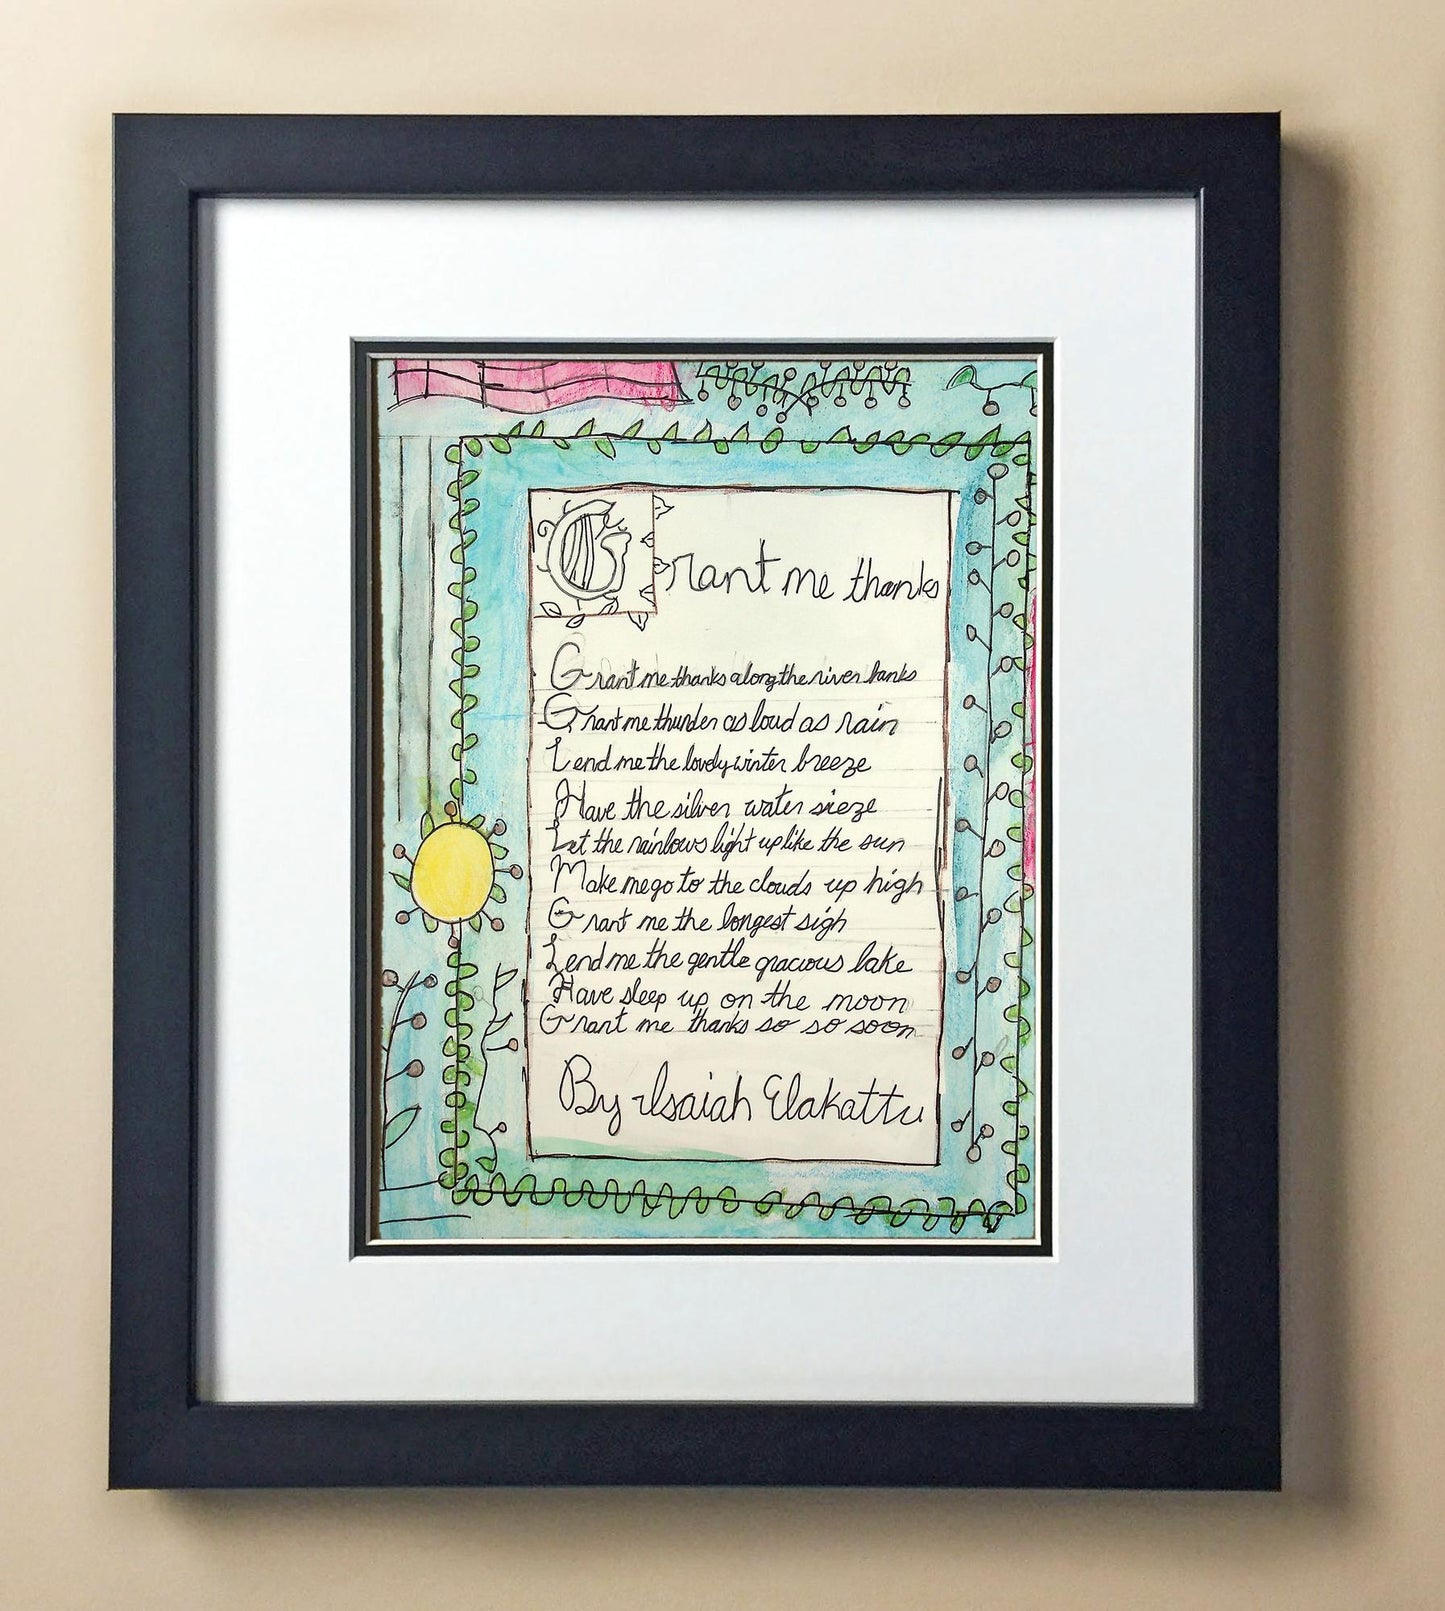 Grant me thanks
Grant me thanks along the river banks
Grant me thunder as loud as rain
Lend me the lovely winter breeze
Have the silver water sieze
Let the rainbows light up like the sun
Make me go to the clouds up high
Grant me the longest sigh
Lend me the gentle gracious lake
Have sleep up on the moon
Grant me thanks so so soon
By Isaiah Elakattu